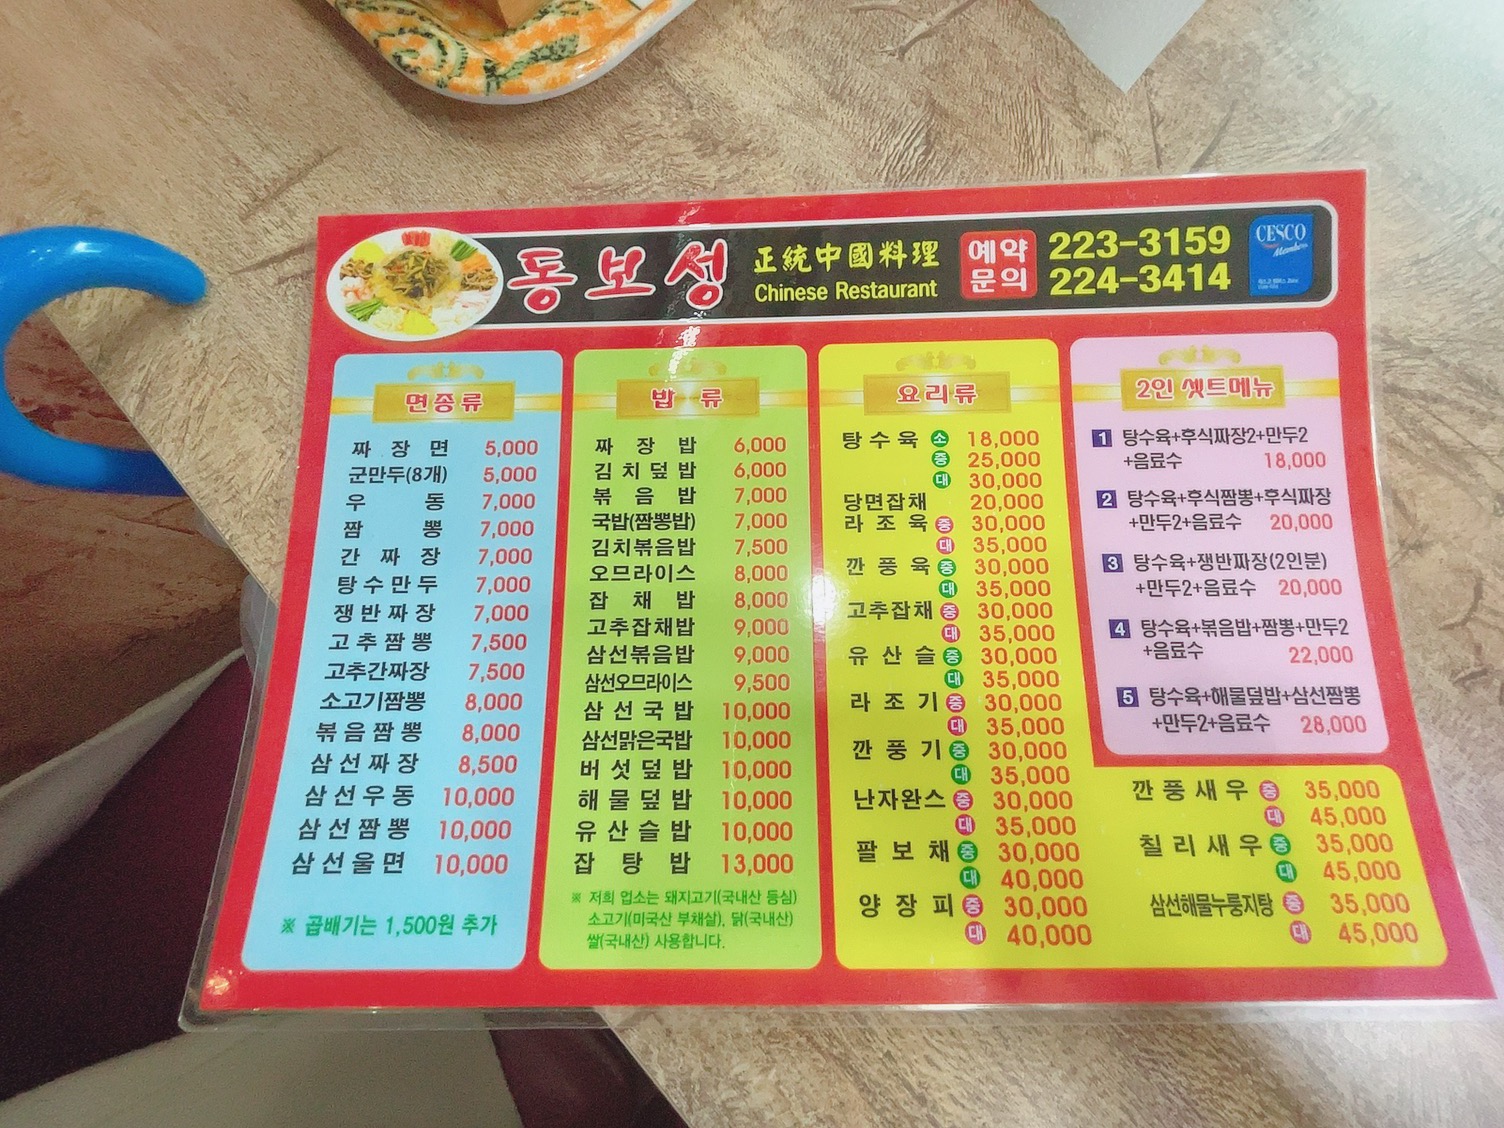 동보성
正統中國料理
Chinese Restaurant
예약
문의
223-3159
224-3414
CESCO
Members
면종류
짜장면 5,000
군만두(8개) 5,000
우동 7,000
짬뽕 7,000
간짜장 7,000
탕수만두 7,000
쟁반짜장 7,000
고추짬뽕 7,500
고추간짜장 7,500
소고기짬뽕 8,000
볶음짬뽕 8,000
삼선짜장 8,500
삼선우동 10,000
삼선짬뽕 10,000
삼선울면 10,000
※ 곱배기는 1,500원 추가
밥류
짜장밥 6,000
김치덮밥 6,000
볶음밥 7,000
국밥(짬뽕밥) 7,000
김치볶음밥 7,500
오므라이스 8,000
잡채밥 8,000
고추잡채밥 9,000
삼선볶음밥 9,000
삼선오므라이스 9,500
삼선국밥 10,000
삼선맑은국밥 10,000
버섯덮밥 10,000
해물덮밥 10,000
유산슬밥 10,000
잡탕밥 13,000
※ 저희 업소는 돼지고기(국내산 등심)
소고기(미국산 부채살), 닭(국내산)
쌀(국내산) 사용합니다.
요리류
탕수육 소 18,000
중 25,000
대 30,000
당면잡채 20,000
라조육 중 30,000
대 35,000
깐풍육 중 30,000
대 35,000
고추잡채 중 30,000
대 35,000
유산슬 중 30,000
대 35,000
라조기 중 30,000
대 35,000
깐풍기 중 30,000
대 35,000
난자완스 중 30,000
대 35,000
팔보채 중 30,000
대 40,000
양장피 중 30,000
대 40,000
깐풍새우 중 35,000
대 45,000
칠리새우 중 35,000
대 45,000
삼선해물누룽지탕 중 35,000
대 45,000
2인 셋트메뉴
1 탕수육+후식짜장2+만두2
+음료수 18,000
2 탕수육+후식짬뽕+후식짜장
+만두2+음료수 20,000
3 탕수육+쟁반짜장(2인분)
+만두2+음료수 20,000
4 탕수육+볶음밥+짬뽕+만두2
+음료수 22,000
5 탕수육+해물덮밥+삼선짬뽕
+만두2+음료수 28,000